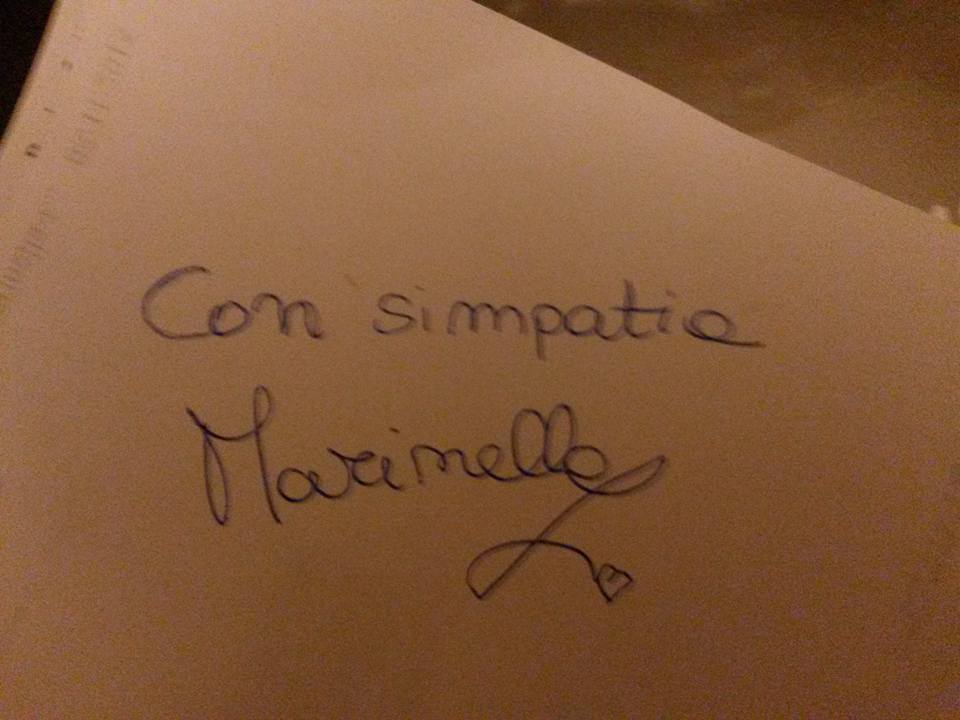 Con simpatia
Marinella